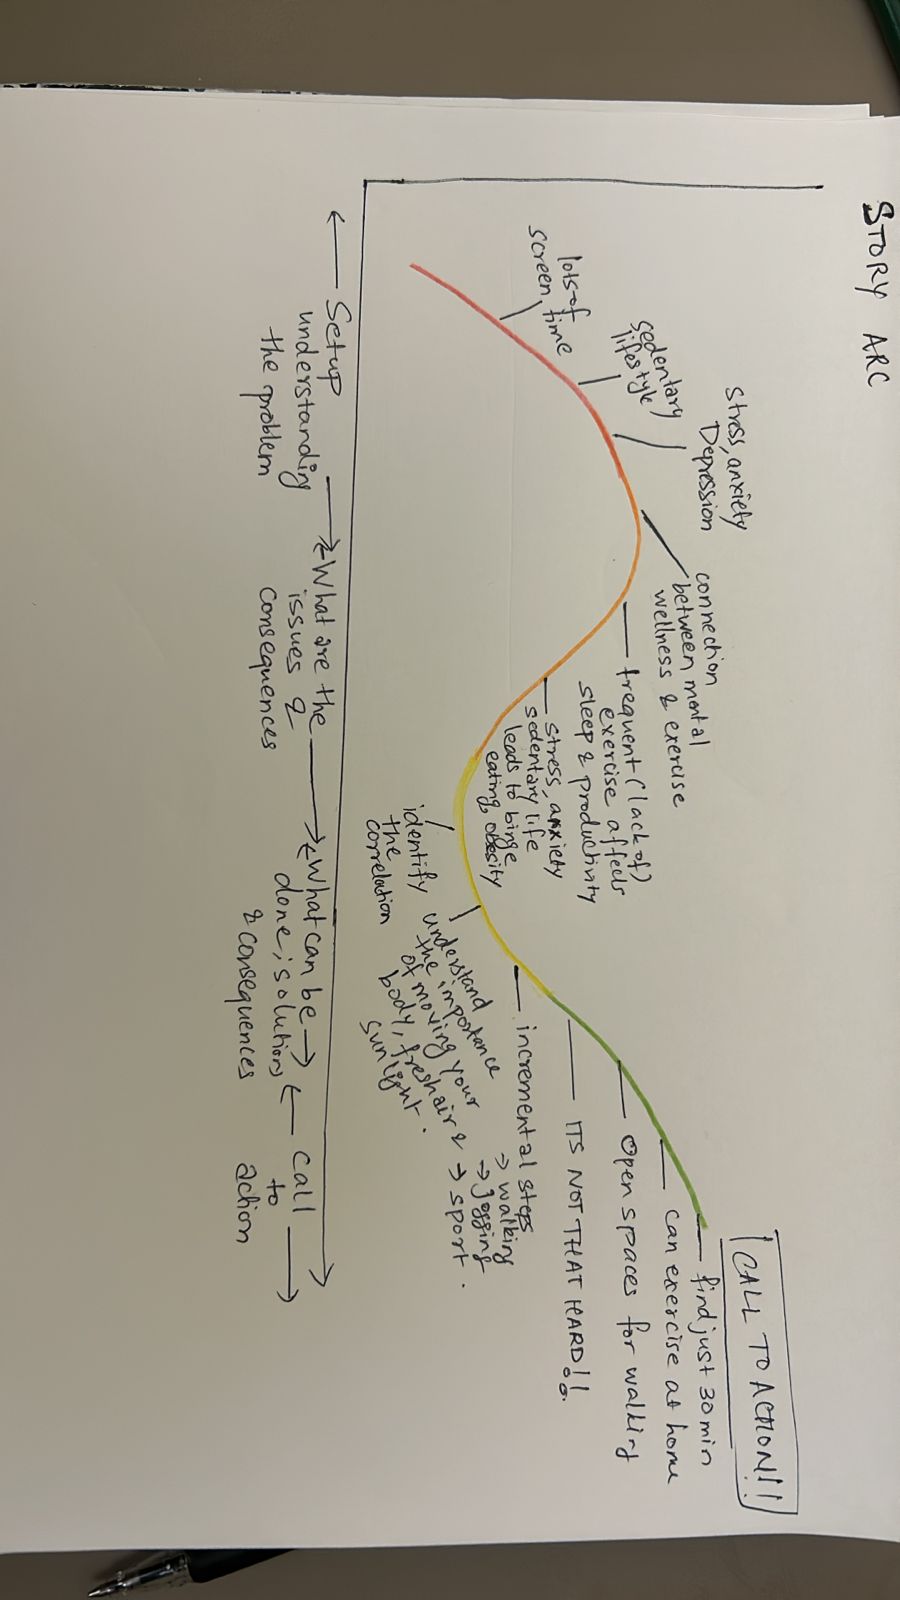 STORY ARC
CALL TO ACTION!!
stress, anxiety
Depression
connection
between mental
wellness & exercise
sedentary
lifestyle
lots of
screen time
frequent (lack of)
exercise affects
sleep & productivity
stress, anxiety
sedentary life
leads to binge
eating, obesity
identify
the
correlation
understand
the importance
of moving your
body, fresh air &
sunlight.
incremental steps
→ walking
→ Jogging
→ sport.
ITS NOT THAT HARD!!.
open spaces for walking
can exercise at home
find just 30 min
Setup
understanding
the problem
What are the
issues &
consequences
What can be
done; solutions
& consequences
call
to
action